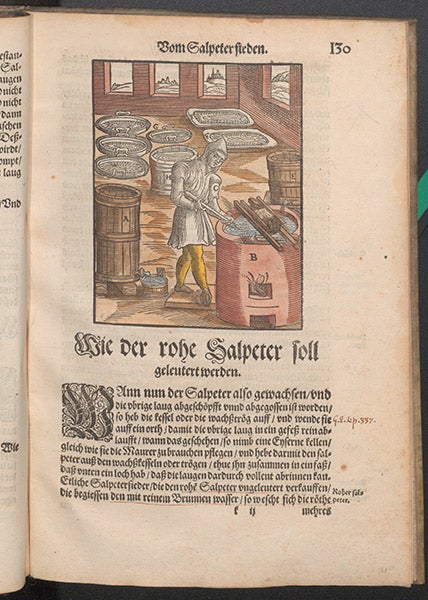 estan-
Sal-
augen
nicht
nicht
dann
aschen
Deß-
wirdt/
ompt/
laug
Vnd
Wie
Vom Salpetersieden.
130
C
A
B
Wie der rohe Salpeter soll
geleutert werden.
WAnn nun der Salpeter also gewachsen/ vnd
die vbrige laug abgeschöpfft vnnd abgegossen ist worden/
so heb die kessel oder die wachßtrög auff/ vnd wende sie
auff ein orth/ damit die vbrige laug in ein gefeß rein ab-
laufft/ wann das geschehen/ so nimb eine Eyserne kellen/
gleich wie sie die Maurer zu brauchen pflegen/ vnd hebe darmit den sal-
peter auß den wachßkesseln oder trögen/ thue ihn zusammen in ein faß/
daß vnten ein loch hab/ daß die laugen dardurch vollent abrinnen kan.
Etliche Salpetersieder/ die den rohē Salpeter vngeleutert verkauffen/
die begiessen den mit reinem Brunnen wasser/ so wescht sich die röthe
Roher sal-
peter.
k ij
mehres